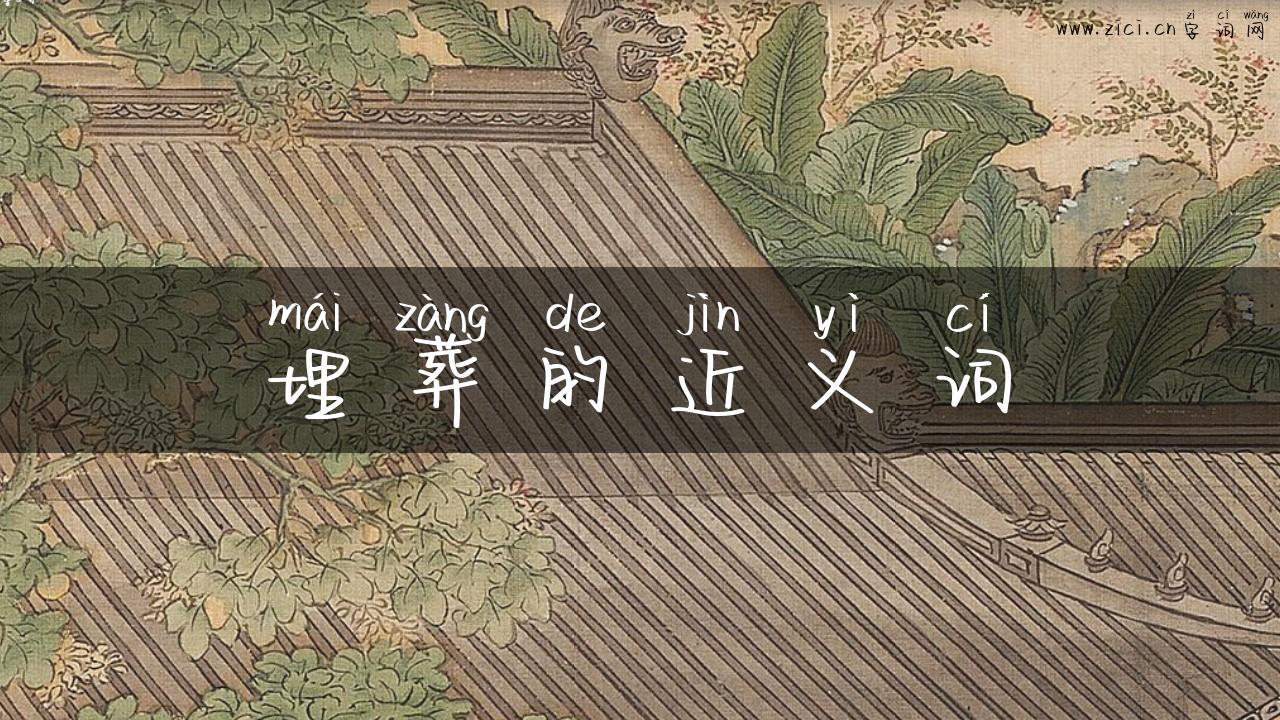 zì cí wǎng
www.zici.cn 字词网
mái zàng de jìn yì cí
埋葬的近义词